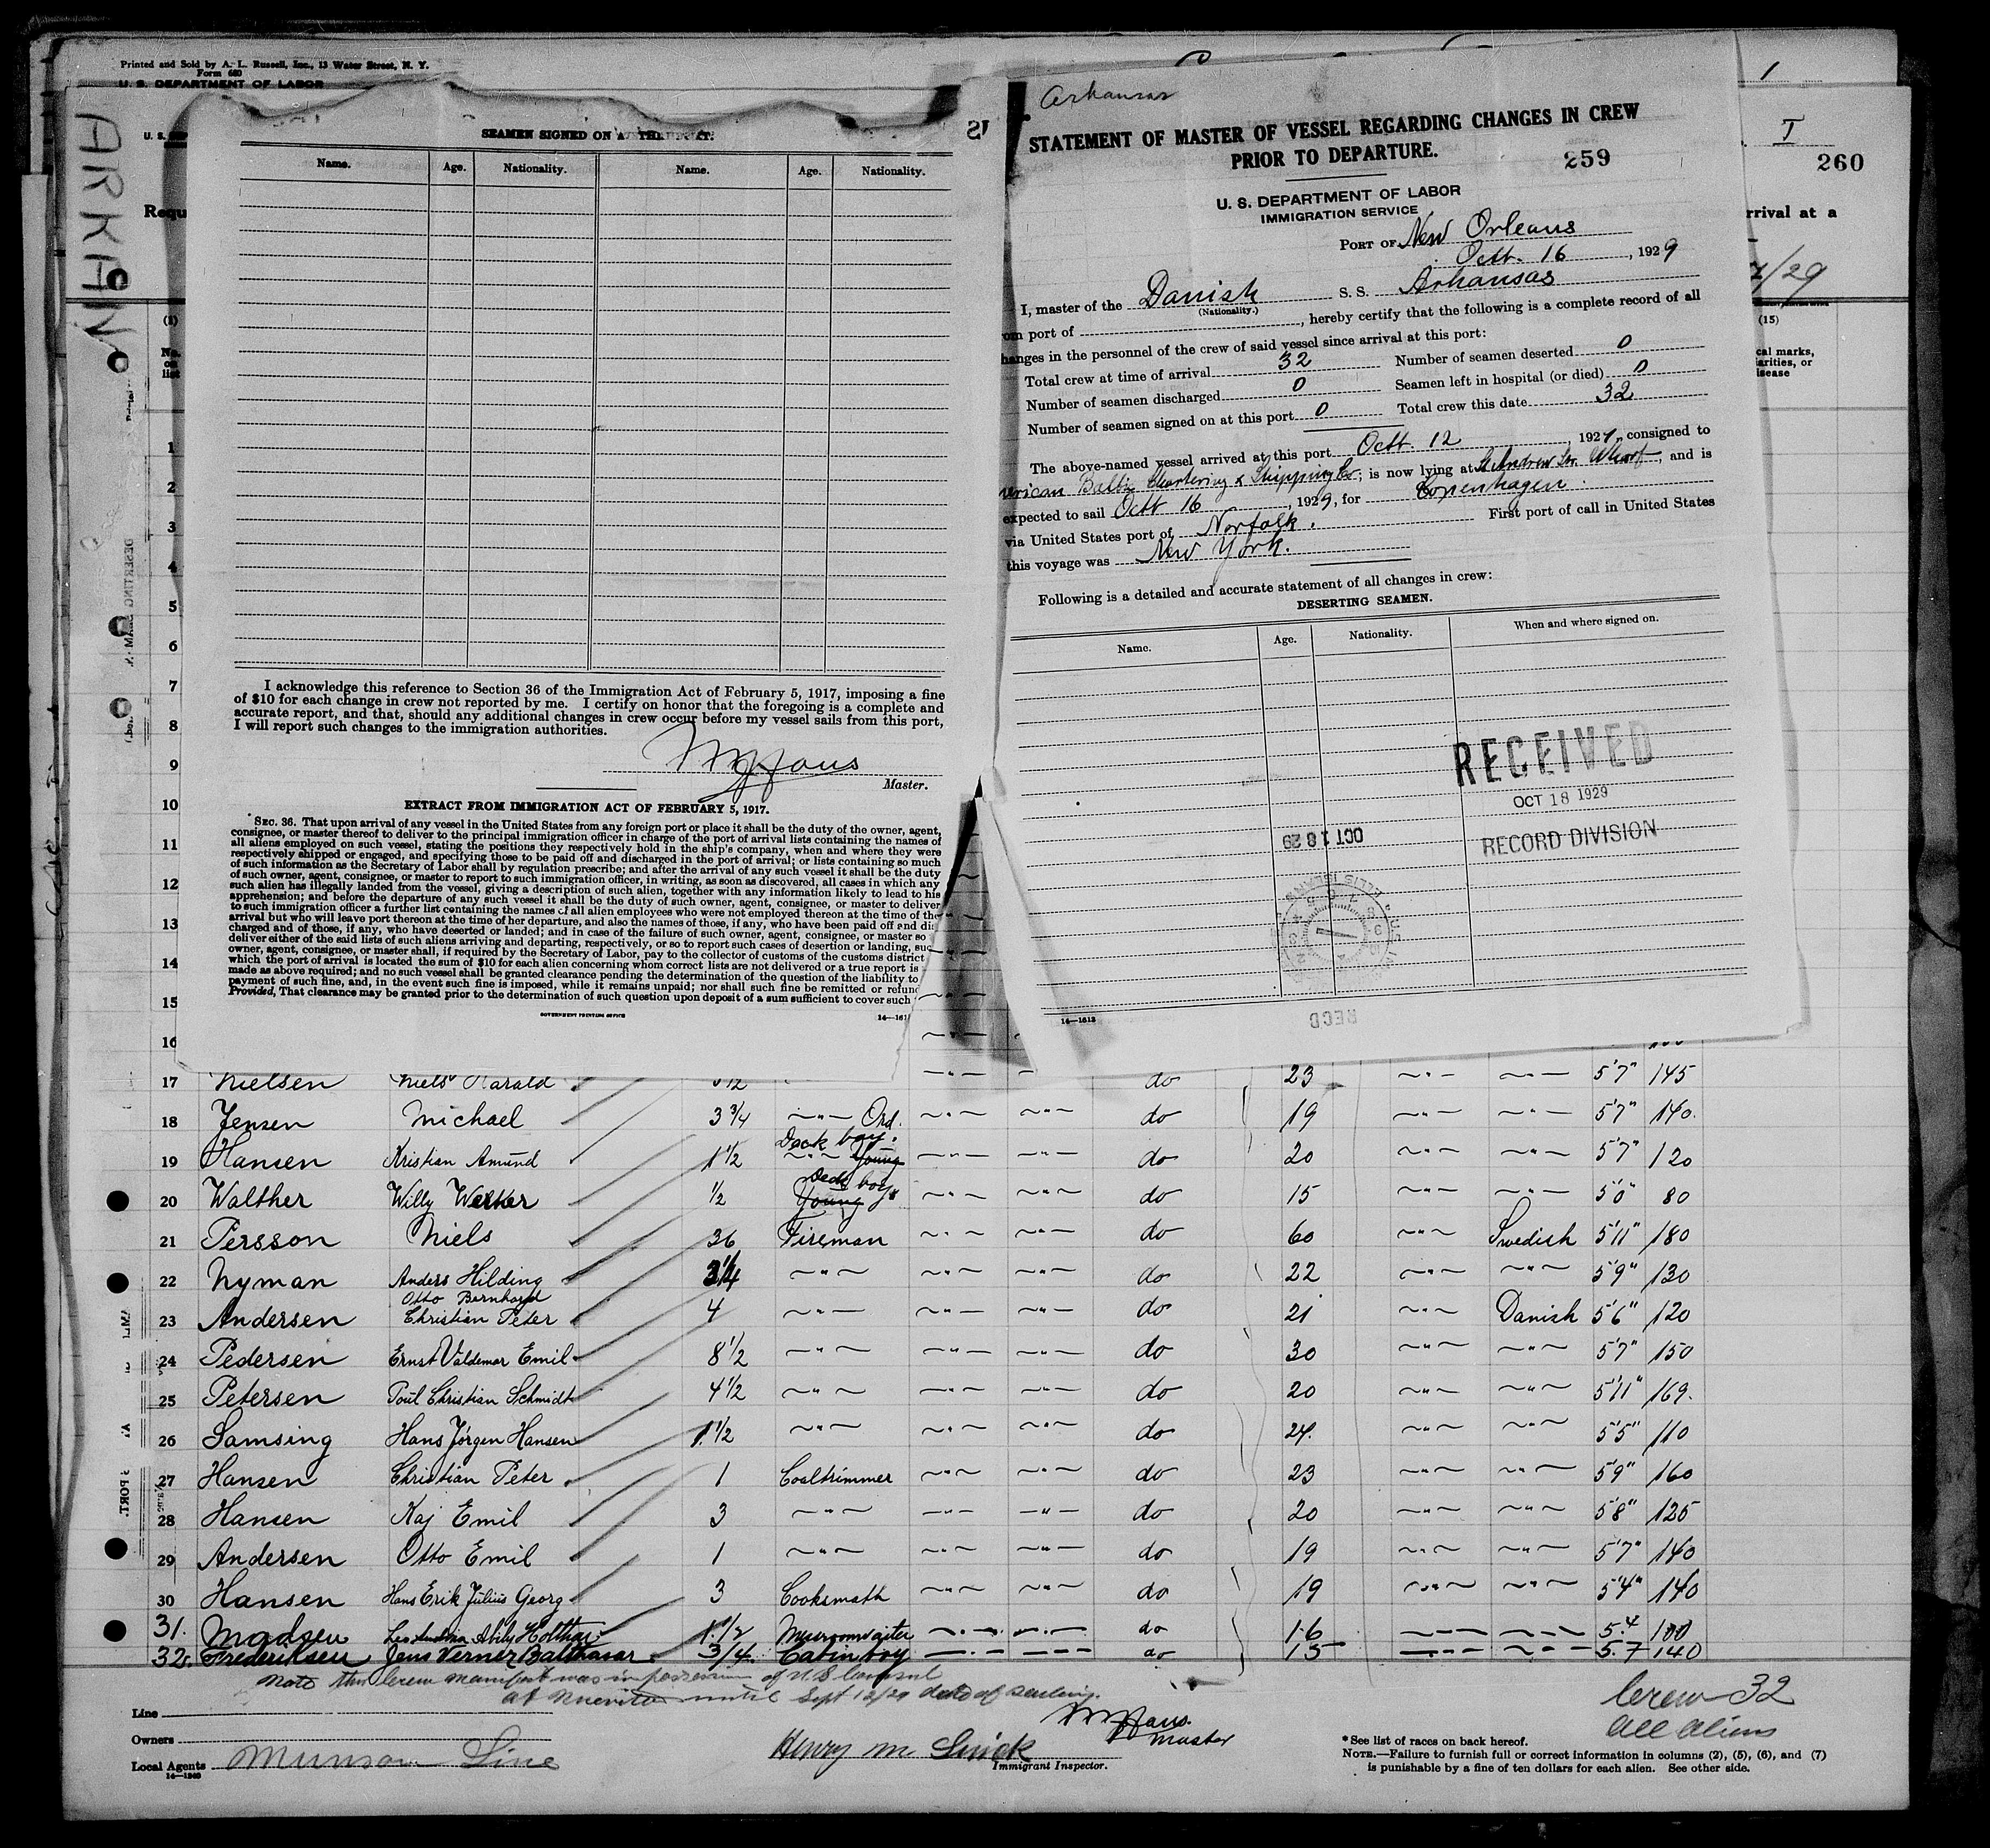 Printed and Sold by A. L. Russell, Inc., 13 Water Street, N. Y.
Form 680
U. S. DEPARTMENT OF LABOR
ARKAN
1
I
260
rrival at a
/29
(15)
cal marks,
arities, or
isease
(1)
No.
on
list
SEAMEN SIGNED ON AT THAT PORT.
Name. Age. Nationality. Name. Age. Nationality.
I acknowledge this reference to Section 36 of the Immigration Act of February 5, 1917, imposing a fine
of $10 for each change in crew not reported by me. I certify on honor that the foregoing is a complete and
accurate report, and that, should any additional changes in crew occur before my vessel sails from this port,
I will report such changes to the immigration authorities.
Master.
EXTRACT FROM IMMIGRATION ACT OF FEBRUARY 5, 1917.
SEC. 36. That upon arrival of any vessel in the United States from any foreign port or place it shall be the duty of the owner, agent,
consignee, or master thereof to deliver to the principal immigration officer in charge of the port of arrival lists containing the names of
all aliens employed on such vessel, stating the positions they respectively hold in the ship's company, when and where they were
respectively shipped or engaged, and specifying those to be paid off and discharged in the port of arrival; or lists containing so much
of such information as the Secretary of Labor shall by regulation prescribe; and after the arrival of any such vessel it shall be the duty
of such owner, agent, consignee, or master to report to such immigration officer, in writing, as soon as discovered, all cases in which any
such alien has illegally landed from the vessel, giving a description of such alien, together with any information likely to lead to his
apprehension; and before the departure of any such vessel it shall be the duty of such owner, agent, consignee, or master to deliver
to such immigration officer a further list containing the names of all alien employees who were not employed thereon at the time of the
arrival but who will leave port thereon at the time of her departure, and also the names of those, if any, who have been paid off and dis
charged and of those, if any, who have deserted or landed; and in case of the failure of such owner, agent, consignee, or master so
deliver either of the said lists of such aliens arriving and departing, respectively, or so to report such cases of desertion or landing, suc
owner, agent, consignee, or master shall, if required by the Secretary of Labor, pay to the collector of customs of the customs district
which the port of arrival is located the sum of $10 for each alien concerning whom correct lists are not delivered or a true report is
made as above required; and no such vessel shall be granted clearance pending the determination of the question of the liability to
payment of such fine, and, in the event such fine is imposed, while it remains unpaid; nor shall such fine be remitted or refund
Provided, That clearance may be granted prior to the determination of such question upon deposit of a sum sufficient to cover such
GOVERNMENT PRINTING OFFICE 14—161
Arkansas
STATEMENT OF MASTER OF VESSEL REGARDING CHANGES IN CREW
PRIOR TO DEPARTURE.
259
U. S. DEPARTMENT OF LABOR
IMMIGRATION SERVICE
PORT OF New Orleans
Octb. 16, 1929
I, master of the Danish S. S. Arkansas
(Nationality.)
om port of , hereby certify that the following is a complete record of all
hanges in the personnel of the crew of said vessel since arrival at this port:
Total crew at time of arrival 32 Number of seamen deserted 0
Number of seamen discharged 0 Seamen left in hospital (or died) 0
Number of seamen signed on at this port 0 Total crew this date 32
The above-named vessel arrived at this port Octb. 12, 1929, consigned to
erican Baltic Chartering & Shipping Co; is now lying at St Andrew Str. Wharf, and is
expected to sail Octb 16, 1929, for Copenhagen.
via United States port of Norfolk. First port of call in United States
this voyage was New York.
Following is a detailed and accurate statement of all changes in crew:
DESERTING SEAMEN.
Name. Age. Nationality. When and where signed on.
RECEIVED
OCT 18 1929
RECORD DIVISION
OCT 18 29
RECD
14—1613
1
2
3
4
5
6
7
8
9
10
11
12
13
14
15
16
17 Nielsen Niels Harald do 23 5'7" 145
18 Jensen Michael 3 3/4 —"— Ord. —"— —"— do 19 —"— —"— 5'7" 140.
19 Hansen Kristian Amund 1 1/2 Deck boy. —"— Young —"— —"— do 20 —"— —"— 5'7" 120
20 Walther Willy Werner 1/2 Deck boy Young —"— —"— do 15 —"— —"— 5'0" 80
21 Persson Niels 36 Fireman —"— —"— do 60 —"— Swedish 5'11" 180
22 Nyman Anders Hilding 3 1/4 —"— —"— —"— do 22 —"— —"— 5'9" 130
23 Andersen Otto Bernhard Christian Peter 4 —"— —"— —"— do 21 —"— Danish 5'6" 120
24 Pedersen Ernst Valdemar Emil 8 1/2 —"— —"— —"— do 30 —"— —"— 5'7" 150
25 Petersen Poul Christian Schmidt 4 1/2 —"— —"— —"— do 20 —"— —"— 5'11" 169.
26 Samsing Hans Jörgen Hansen 1 1/2 —"— —"— —"— do 24. —"— —"— 5'5" 110
27 Hansen Christian Peter 1 Coaltrimmer —"— —"— do 23 —"— —"— 5'9" 160
28 Hansen Kaj Emil 3 —"— —"— —"— do 20 —"— —"— 5'8" 125
29 Andersen Otto Emil 1 —"— —"— —"— do 19 —"— —"— 5'7" 140
30 Hansen Hans Erik Julius Georg 3 Cooksmath —"— —"— do 19 —"— —"— 5'4" 140
31. Madsen Holthar 1 1/2 Messroomvaiter —"— —"— do 16 —"— —"— 5.4 100
32. Frederiksen Jens Verner Balthasar 3/4 Cabin boy —"— —"— do 15 —"— —"— 5.7 140
Note this Crew manifest was in possession of U.S. Consul
at until Sept 12/29 date of sailing.
Crew 32
All Aliens
Line
Owners
Local Agents Munson Line
14—1240
Master
Henry M
Immigrant Inspector.
* See list of races on back hereof.
NOTE.—Failure to furnish full or correct information in columns (2), (5), (6), and (7)
is punishable by a fine of ten dollars for each alien. See other side.